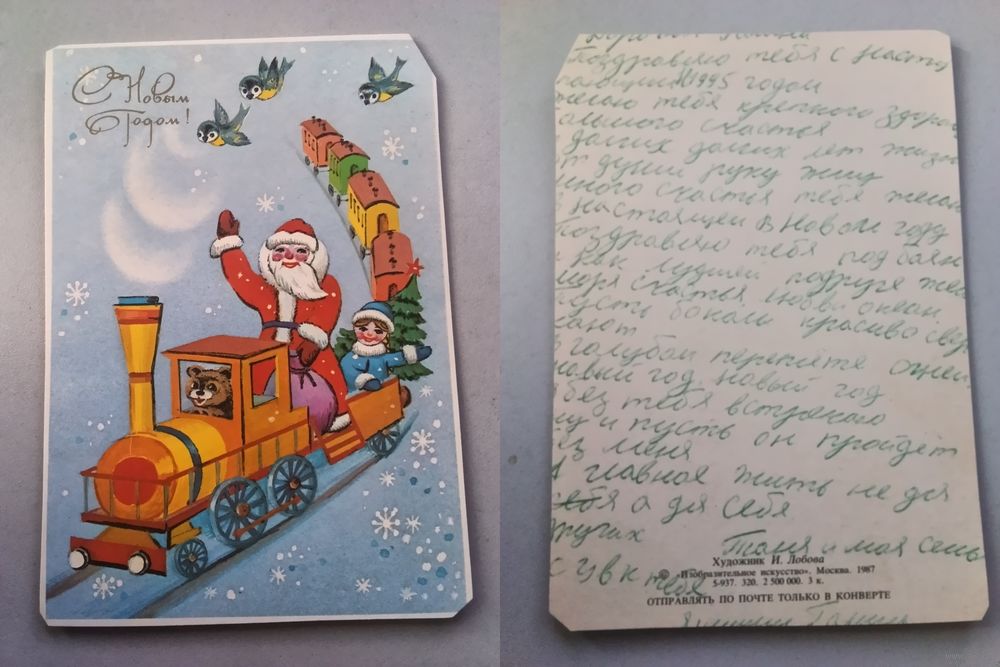 С Новым
Годом!
Поздравляю тебя с насту
1995 годом
желаю тебя крепкого здоров
счастья
долгих долгих лет жизни
от души руку жму
много счастья тебя желаю
настоящей в Новом году
поздравляю тебя под баян
как лучшей подруге жел
моря счастья любви океан
пусть бокалы красиво свер
кают
в голубом перепляте огней
новый год, новый год
без тебя встречаю
ну и пусть он пройдёт
без меня
А главное жить не для
себя а для себя
других Таня и моя семь
Художник И. Лобова
© «Изобразительное искусство». Москва. 1987
5-937. 320. 2 500 000. 3 к.
с ув к тебя
ОТПРАВЛЯТЬ ПО ПОЧТЕ ТОЛЬКО В КОНВЕРТЕ